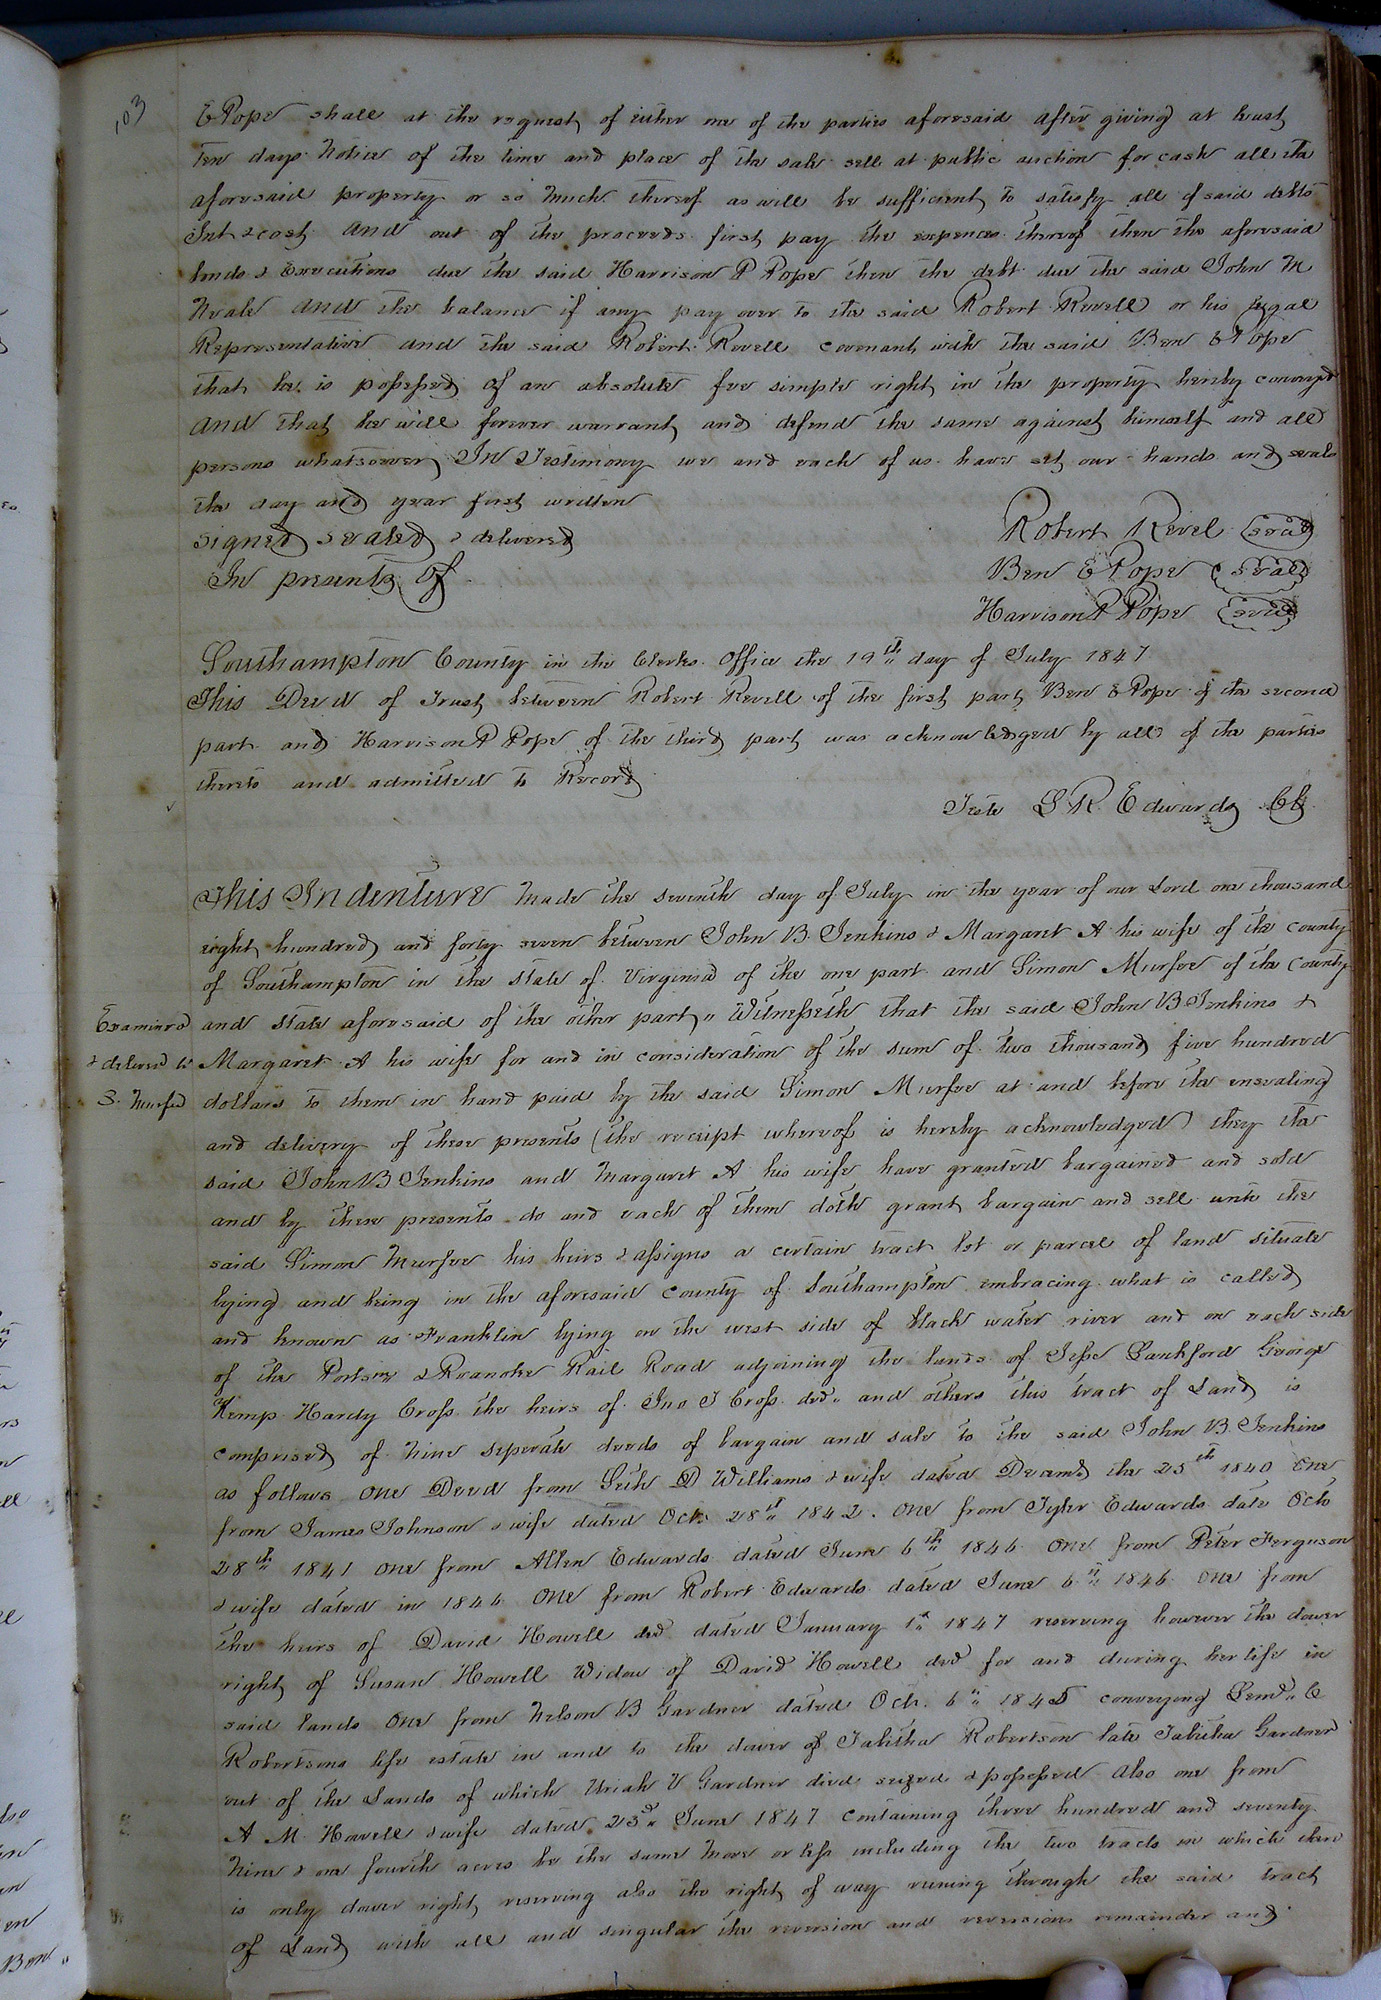 103
E Pope shall at the request of either one of the parties aforesaid after giving at least
ten days notice of the time and place of the sale sell at public auction for cash all the
aforesaid property or so much thereof as will be sufficient to satisfy all of said debts
Int & cost and out of the proceeds first pay the expences thereof then the aforesaid
bonds & Executions due the said Harrison P Pope then the debt due the said John M
Neale and the balance if any pay over to the said Robert Revell or his legal
Representative and the said Robert Revell covenant with the said Ben E Pope
that he is possessed of an absolute fee simple right in the property hereby conveyed
and that he will forever warrant and defend the same against himself and all
persons whatsoever In Testimony we and each of us have set our hands and seals
the day and year first written
signed sealed & delivered
In presents of
Robert Revel seal
Ben E Pope seal
Harrison P Pope seal
Southampton County in the Clerks Office the 19th day of July 1847
This Deed of Trust between Robert Revell of the first part Ben E Pope of the second
part and Harrison P Pope of the third part was acknowledged by all of the parties
thereto and admitted to Record
Teste L R Edwards Clk
This Indenture made the seventh day of July in the year of our Lord one thousand
eight hundred and forty seven between John B. Jenkins & Margaret A his wife of the county
of Southampton in the state of Virginia of the one part and Simon Murfee of the County
and state aforesaid of the other part " Witnesseth that the said John B Jenkins &
Examined
& deliverd to
S. Murfee
Margaret A his wife for and in consideration of the sum of two thousand five hundred
dollars to them in hand paid by the said Simon Murfee at and before the ensealing
and delivery of these presents (the receipt whereof is hereby acknowledged) they the
said John B Jenkins and Margaret A his wife have granted bargained and sold
and by these presents do and each of them doth grant bargain and sell unto the
said Simon Murfee his heirs & assigns a certain tract lot or parcel of land situate
lying and being in the aforesaid county of Southampton embracing what is called
and known as Franklin lying on the west side of black water river and on each side
of the Portsm & Roanoke Rail Road adjoining the lands of Jesse Lankford George
Kemp Hardy Cross the heirs of Jno J Cross decd " and others this tract of Land is
comprised of nine seperate deeds of bargain and sale to the said John B. Jenkins
as follows one Deed from Seth D Williams & wife dated Decemb the 25th 1840 One
from James Johnson & wife dated Oct. 28th 1842. One from Tyler Edwards date Octo
28th 1841 one from Allen Edwards dated June 6th 1846 one from Peter Ferguson
& wife dated in 1846 one from Robert Edwards dated June 6th 1846 one from
the heirs of David Howell decd dated January 1st 1847 reserving however the dower
right of Susan Howell Widow of David Howell decd for and during her life in
said lands One from Nelson B Gardner dated Oct. 6th 1845 conveying Lemd " C
Robertsons life estate in and to the dower of Tabitha Robertson late Tabitha Gardner
out of the Lands of which Uriah V Gardner died seized & possessed Also one from
A M. Howell & wife dated 23d June 1847 containing three hundred and seventy
nine & one fourth acres be the same more or less including the two tracts in which there
is only dower right reserving also the right of way runing through the said tract
of Land with all and singular the reversion and reversions remainder and